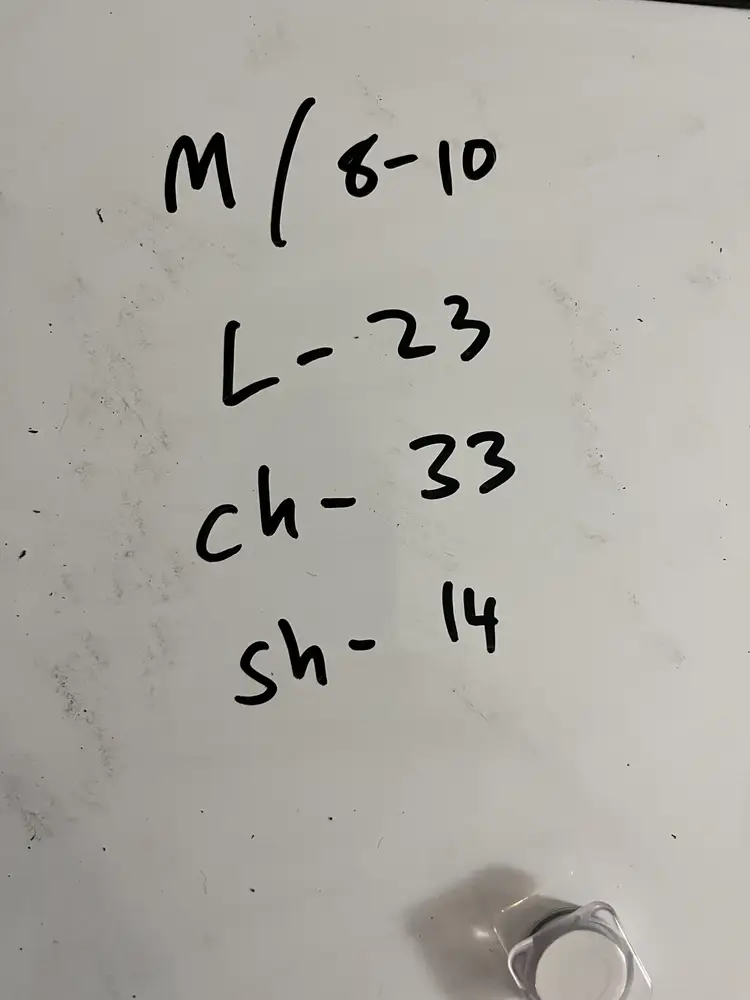 M/8-10
L-23
ch-33
sh-14